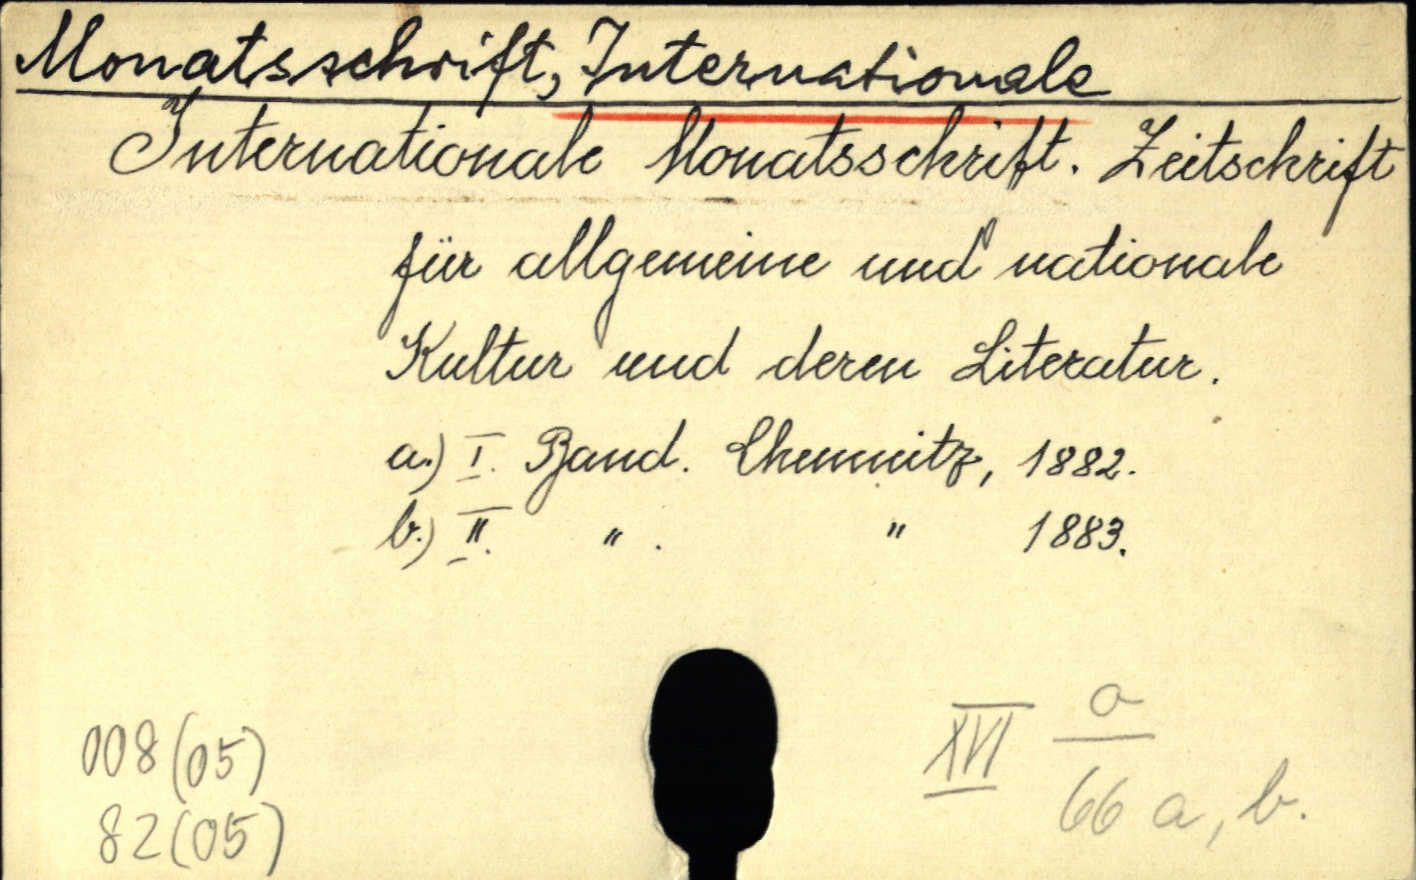 Monatsschrift, Internationale
Internationale Monatsschrift. Zeitschrift
für allgemeine und nationale
Kultur und deren Literatur.
a.) I. Band. Chemnitz, 1882.
b.) II. " . " 1883.
008(05)
82(05)
XVI a
66 a, b.